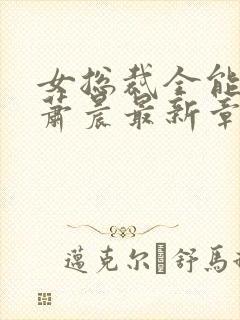 女总裁全能
萧晨最新章
邁克尔舒馬